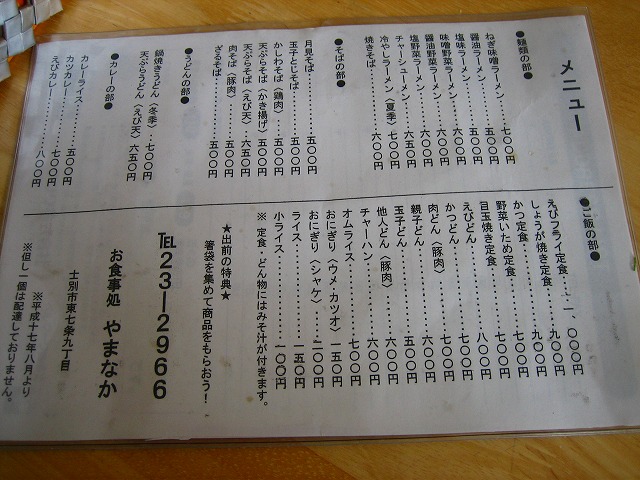 メニュー
●麺類の部●
ねぎ味噌ラーメン……七〇〇円
醤油ラーメン………五〇〇円
塩味ラーメン………五〇〇円
味噌ラーメン………六〇〇円
醤油野菜ラーメン……六〇〇円
味噌野菜ラーメン……六〇〇円
塩野菜ラーメン……六〇〇円
チャーシューメン……六五〇円
冷やしラーメン〈夏季〉七〇〇円
焼きそば…………六〇〇円
●そばの部●
月見そば…………五〇〇円
玉子とじそば………五〇〇円
かしわそば〈鶏肉〉…五〇〇円
天ぷらそば〈かき揚げ〉五〇〇円
天ぷらそば〈えび天〉六五〇円
肉そば〈豚肉〉……五〇〇円
ざるそば…………五〇〇円
●うどんの部●
鍋焼きうどん〈冬季〉七〇〇円
天ぷらうどん〈えび天〉六五〇円
●カレーの部●
カレーライス………五〇〇円
カツカレー………七〇〇円
えびカレー………八〇〇円
●ご飯の部●
えびフライ定食……一、〇〇〇円
しょうが焼き定食……九〇〇円
かつ定食…………九〇〇円
野菜いため定食……七〇〇円
目玉焼き定食………八〇〇円
えびどん…………七〇〇円
かつどん…………七〇〇円
肉どん〈豚肉〉……六〇〇円
親子どん…………六〇〇円
玉子どん…………五〇〇円
他人どん〈豚肉〉……六〇〇円
チャーハン………六〇〇円
オムライス………七〇〇円
おにぎり〈ウメ・カツオ〉一五〇円
おにぎり〈シャケ〉…二〇〇円
ライス…………一五〇円
小ライス…………一〇〇円
※定食・どん物にはみそ汁が付きます。
★出前の特典★
箸袋を集めて商品をもらおう!
TEL 23-2966
お食事処 やまなか
士別市東七条九丁目
※平成十七年八月より
※但し一個は配達しておりません。